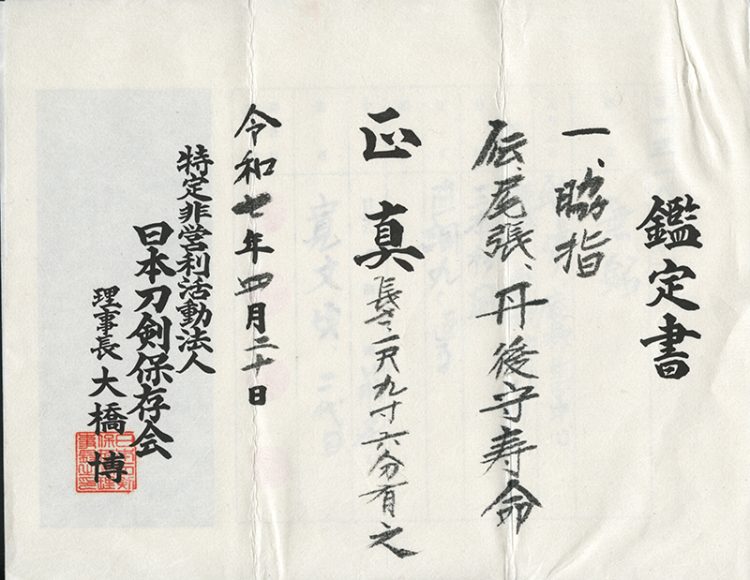 鑑定書
一、脇指
伝、尾張、丹後守寿命
正真 長さ、一尺九寸六分有之
令和七年四月二十日
特定非営利活動法人
日本刀剣保存会
理事長 大橋博